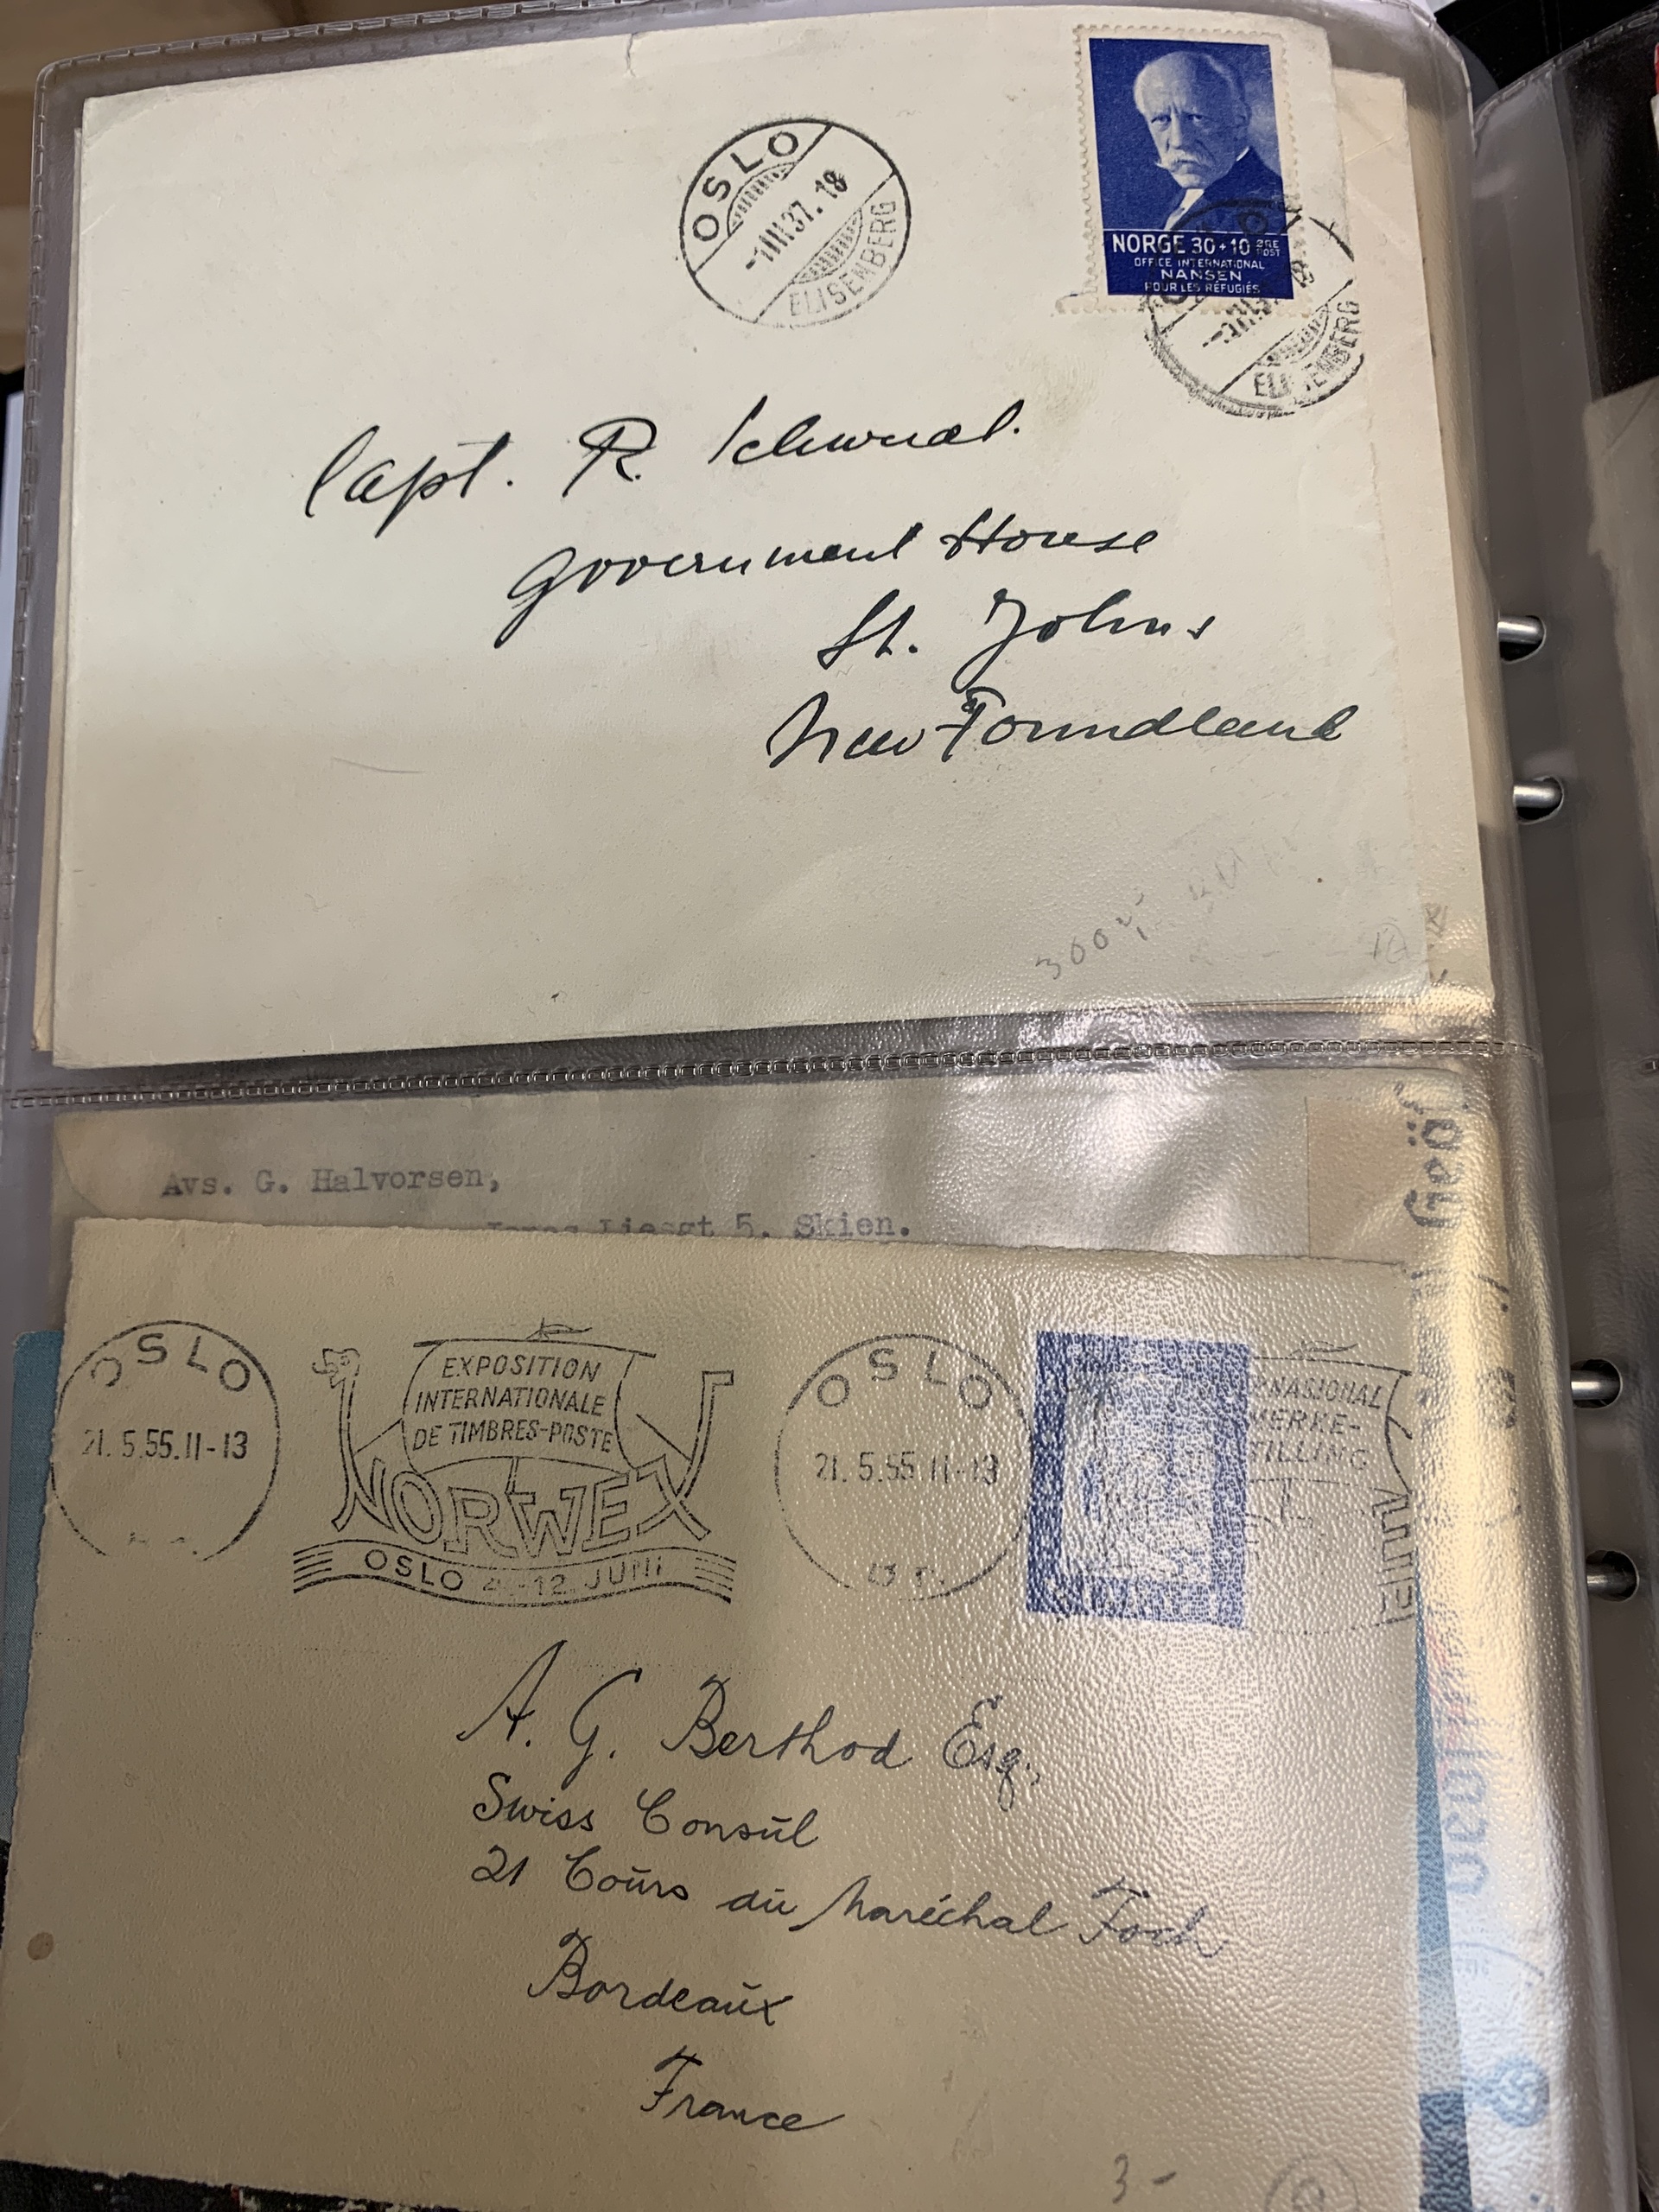 OSLO
-1III37.18
ELISENBERG
NORGE 30+10 ØRE
POST
OFFICE INTERNATIONAL
NANSEN
POUR LES RÉFUGIÉS
ELISENBERG
Capt. R.
Government House
St. Johns
New Foundland
Avs. G. Halvorsen,
5, Skien.
OSLO
21.5.55.11-13
EXPOSITION
INTERNATIONALE
DE TIMBRES-POSTE
NORWEX
OSLO 4.-12.JUNI
OSLO
21.5.55 11-13
A. G. Berthod Esq.,
Swiss Consul
21 Cours du Maréchal Foch
Bordeaux
France
3-